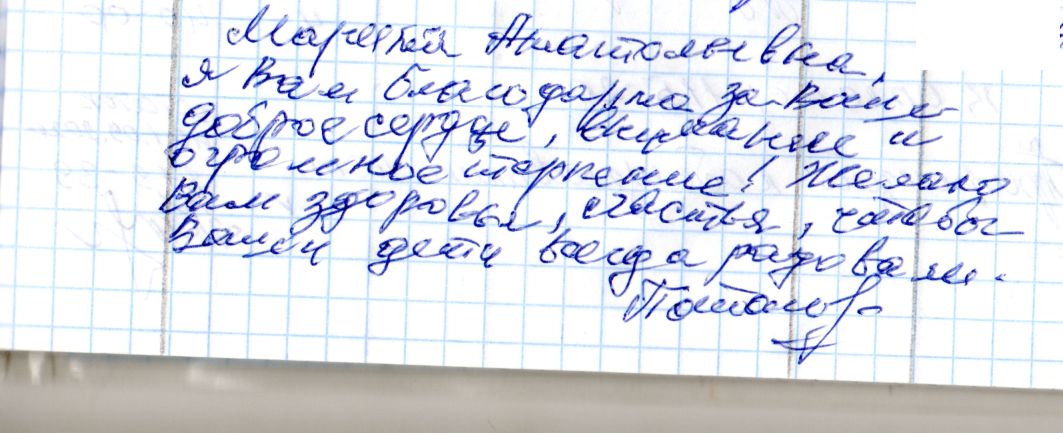 Анатольевна,
я Вам благодарна за Ваше
доброе сердце, внимание и
огромное терпение! Желаю
Вам здоровья, счастья, чтобы
Ваши дети всегда радовали.